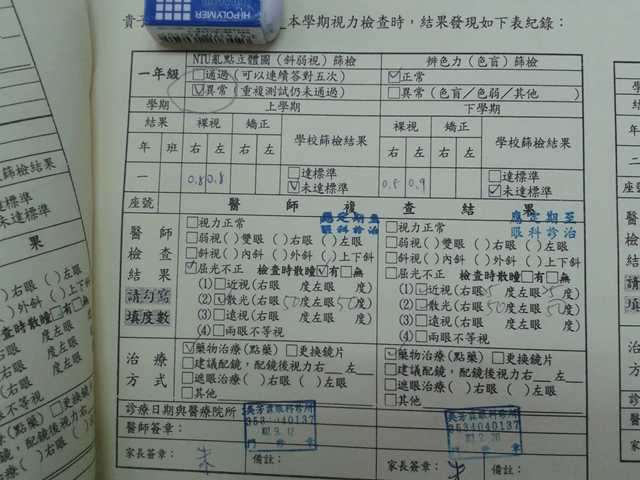 HI-POLYMER
貴子 本學期視力檢查時,結果發現如下表紀錄:
一年級 NTU亂點立體圖(斜弱視)篩檢 辨色力(色盲)篩檢
□通過(可以連續答對五次) ☑正常
☑異常(重複測試仍未通過) □異常(色盲/色弱/其他 )
學期 上學期 下學期
結果 裸視 矯正 學校篩檢結果 裸視 矯正 學校篩檢結果
年 班 右 左 右 左 右 左 右 左
一 0.8 0.8 □達標準 0.8 0.9 □達標準
☑未達標準 ☑未達標準
座號 醫師複查結果
應定期至 應定期至
眼科診治 眼科診治
醫師檢查結果 請勾寫填度數
□視力正常 □視力正常
□弱視( )雙眼 ( )右眼( )左眼 □弱視( )雙眼 ( )右眼( )左眼
□斜視( )內斜( )外斜( )上下斜 □斜視( )內斜( )外斜( )上下斜
☑屈光不正 檢查時散瞳☑有□無 □屈光不正 檢查時散瞳□有□無
(1)□近視(右眼 度左眼 度) (1)☑近視(右眼 度左眼 度)
(2)☑散光(右眼50度左眼50度) (2)☑散光(右眼50度左眼50度)
(3)□遠視(右眼 度左眼 度) (3)□遠視(右眼 度左眼 度)
(4)□兩眼不等視 (4)□兩眼不等視
治療方式
☑藥物治療(點藥) □更換鏡片 ☑藥物治療(點藥) □更換鏡片
□建議配鏡,配鏡後視力右__左__ □建議配鏡,配鏡後視力右__左__
□遮眼治療( )右眼( )左眼 □遮眼治療( )右眼( )左眼
□其他 □其他
診療日期與醫療院所:
醫師簽章:
吳芳菲眼科診所 吳芳菲眼科診所
3534040137 3534040137
102.9.12 103.2.20
門診章 門診章
家長簽章: 備註: 家長簽章: 備註: